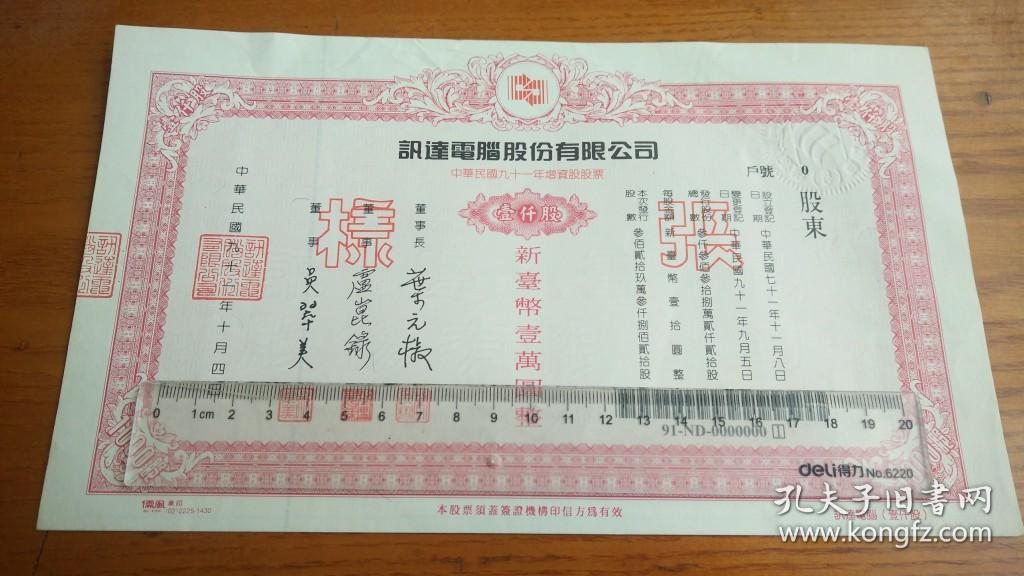 訊達電腦股份有限公司
中華民國九十一年增資股股票
壹仟股
新臺幣壹萬圓
樣
張
戶號 0
股東
設立登記日期 中華民國七十一年十一月八日
變更登記日期 中華民國九十一年九月五日
發行股份總數 參仟參佰參拾捌萬貳仟貳拾股
每股金額 新臺幣壹拾圓整
本次發行股數 參佰貳拾玖萬參仟捌佰貳拾股
董事長
董事 盧崑錄
董事
中華民國九十一年十月四日
0 1cm 2 3 4 5 6 7 8 9 10 11 12 13 14 15 16 17 18 19 20
91-ND-0000000
deli得力 No.6220
儒風
(02)2225-1430
本股票須蓋簽證機構印信方爲有效
訊達電腦(壹仟股)
孔夫子旧书网
www.kongfz.com